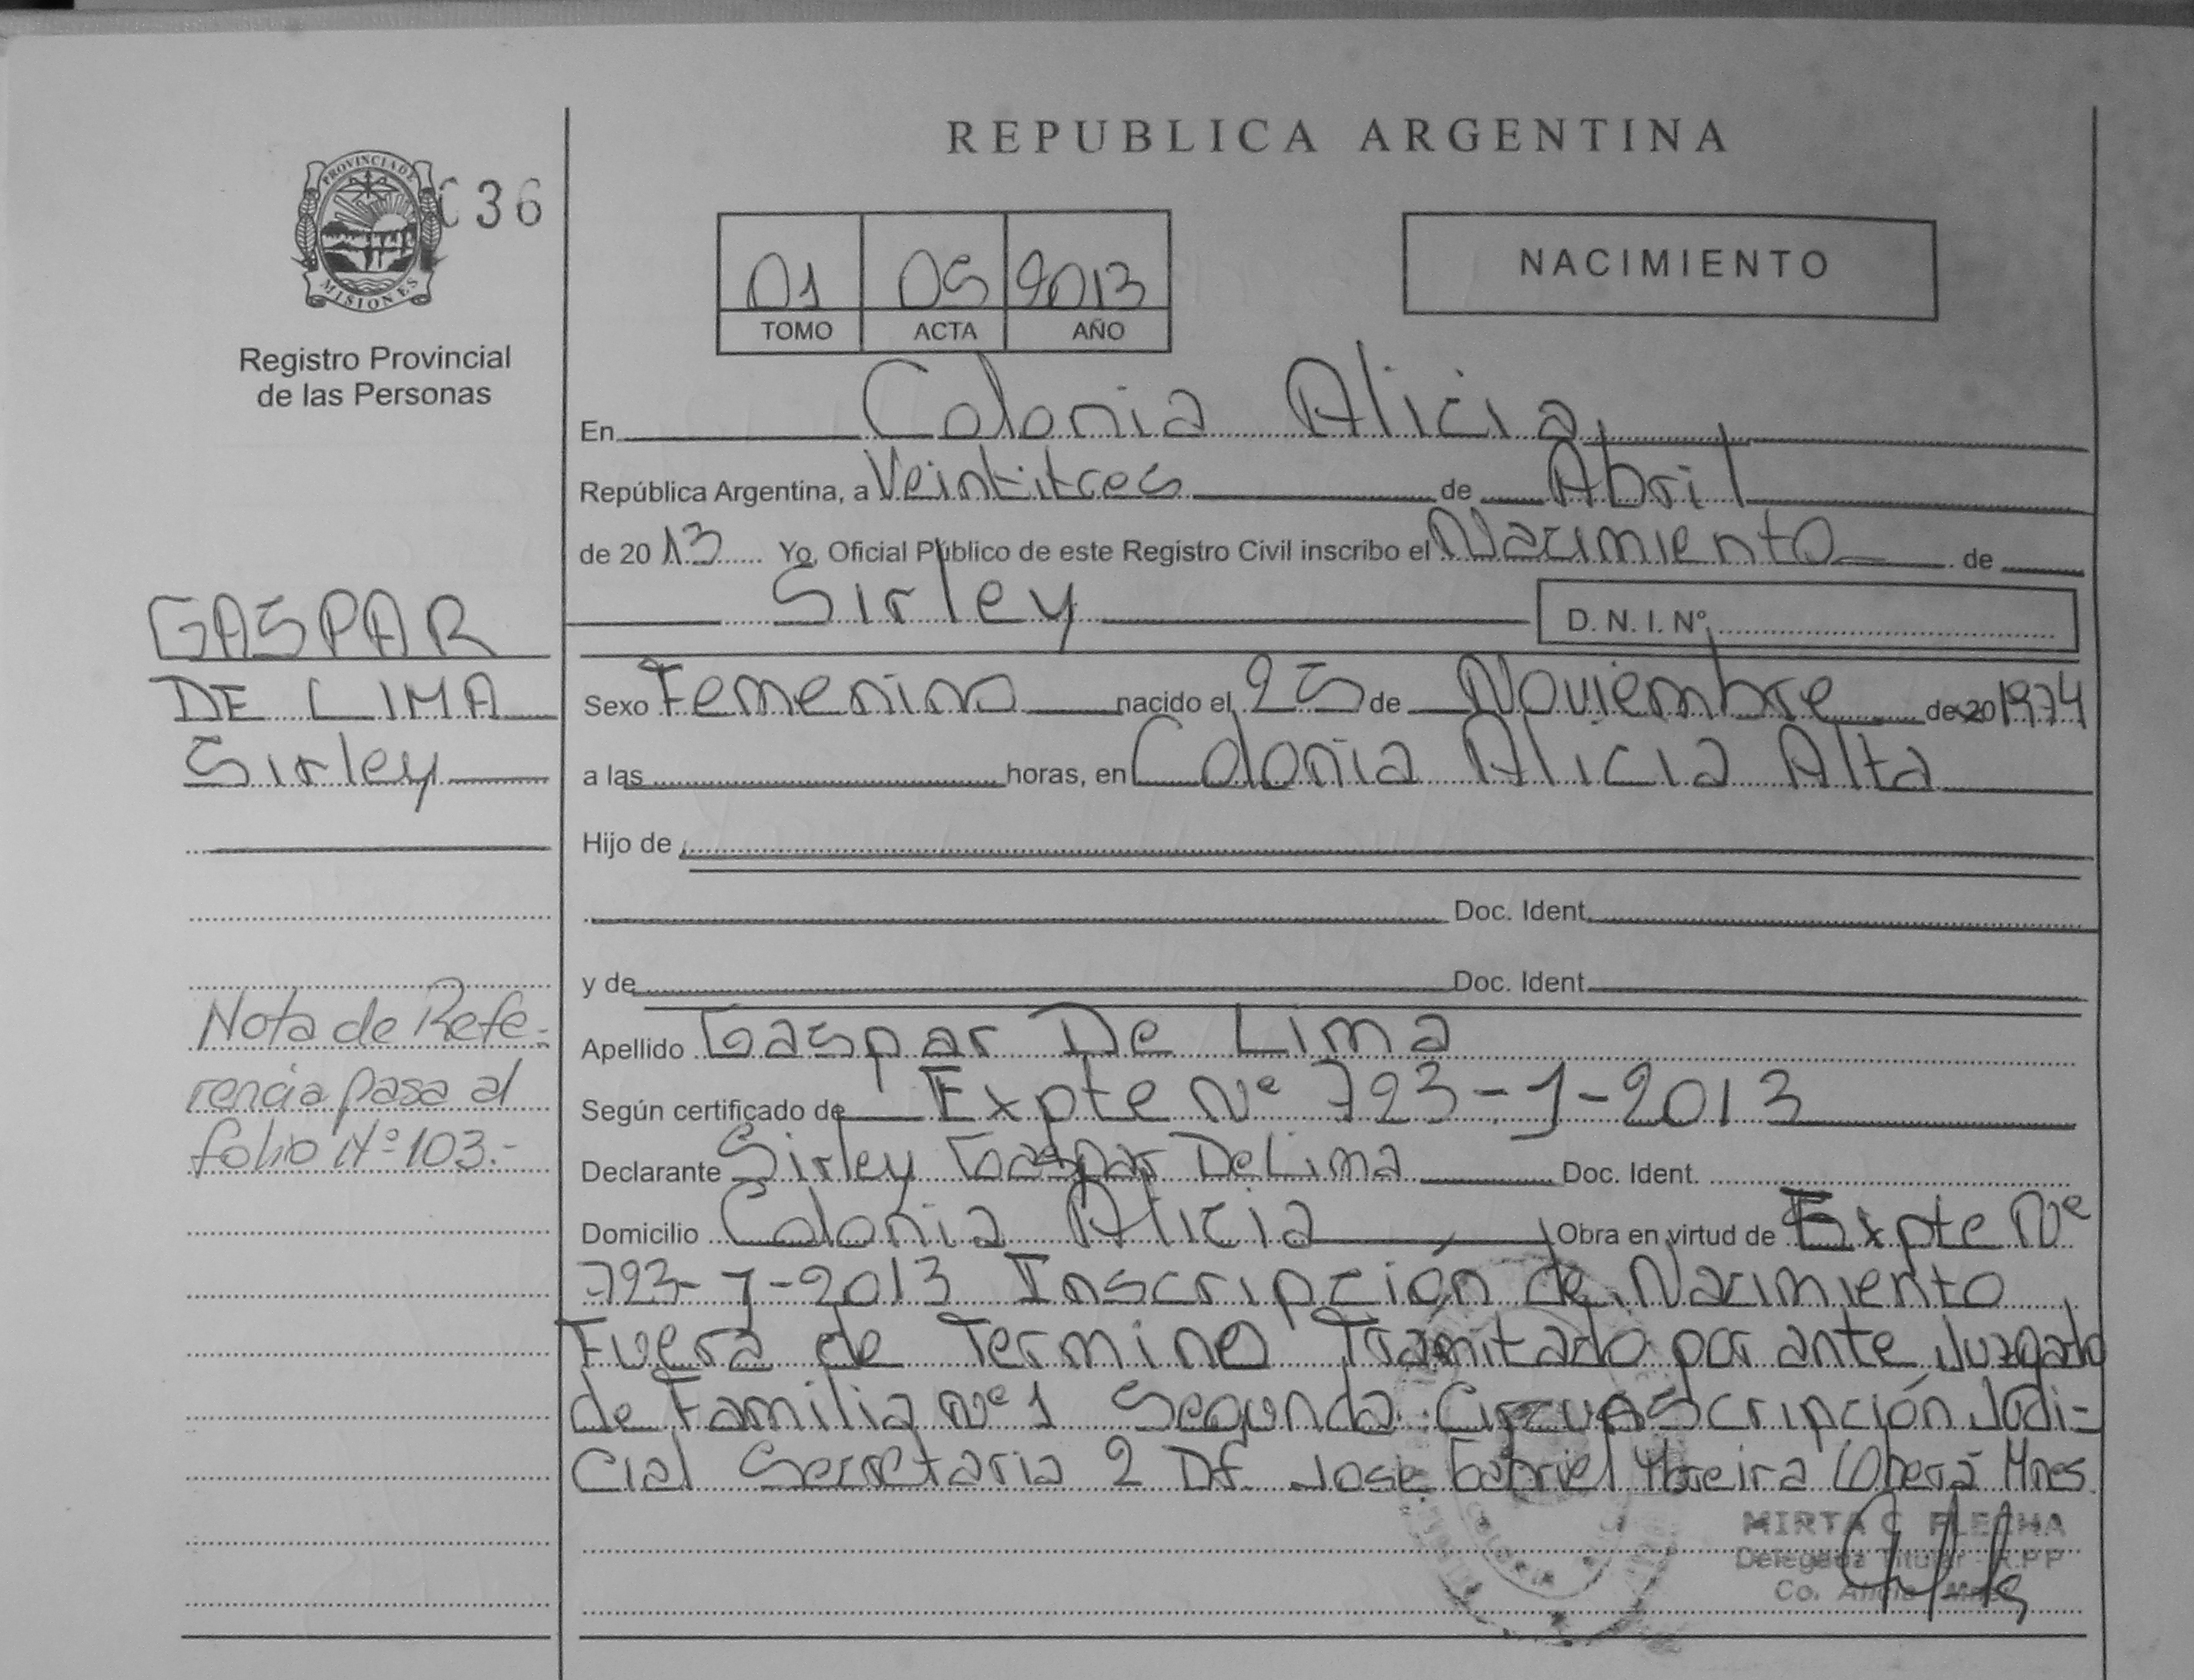 REPUBLICA ARGENTINA
PROVINCIA DE
MISIONES
C36
Registro Provincial
de las Personas
01 05 2013
TOMO ACTA AÑO
NACIMIENTO
En Colonia Alicia
República Argentina, a Veintitres de Abril
de 20 13 Yo, Oficial Público de este Registro Civil inscribo el Nacimiento de
Sirley D. N. I. Nº
GASPAR
DE LIMA
Sirley
Sexo Femenino nacido el 25 de Noviembre de 20 1974
a las horas, en Colonia Alicia Alta
Hijo de
Doc. Ident.
y de Doc. Ident.
Nota de Refe-
rencia pasa al
folio Nº 103.-
Apellido Gaspar De Lima
Según certificado de Expte Nº 723-J-2013
Declarante Sirley Gaspar De Lima Doc. Ident.
Domicilio Colonia Alicia Obra en virtud de Expte Nº
723-J-2013 Inscripción de Nacimiento
Fuera de Termino Tramitado por ante Juzgado
de Familia Nº 1 Segunda Circunscripción Judi-
cial Secretaria 2 Dr. Jose Gabriel Moreira Oberá Mnes.
MIRTA C FLECHA
Delegada Titular R.P.P
Co. Alicia Mnes